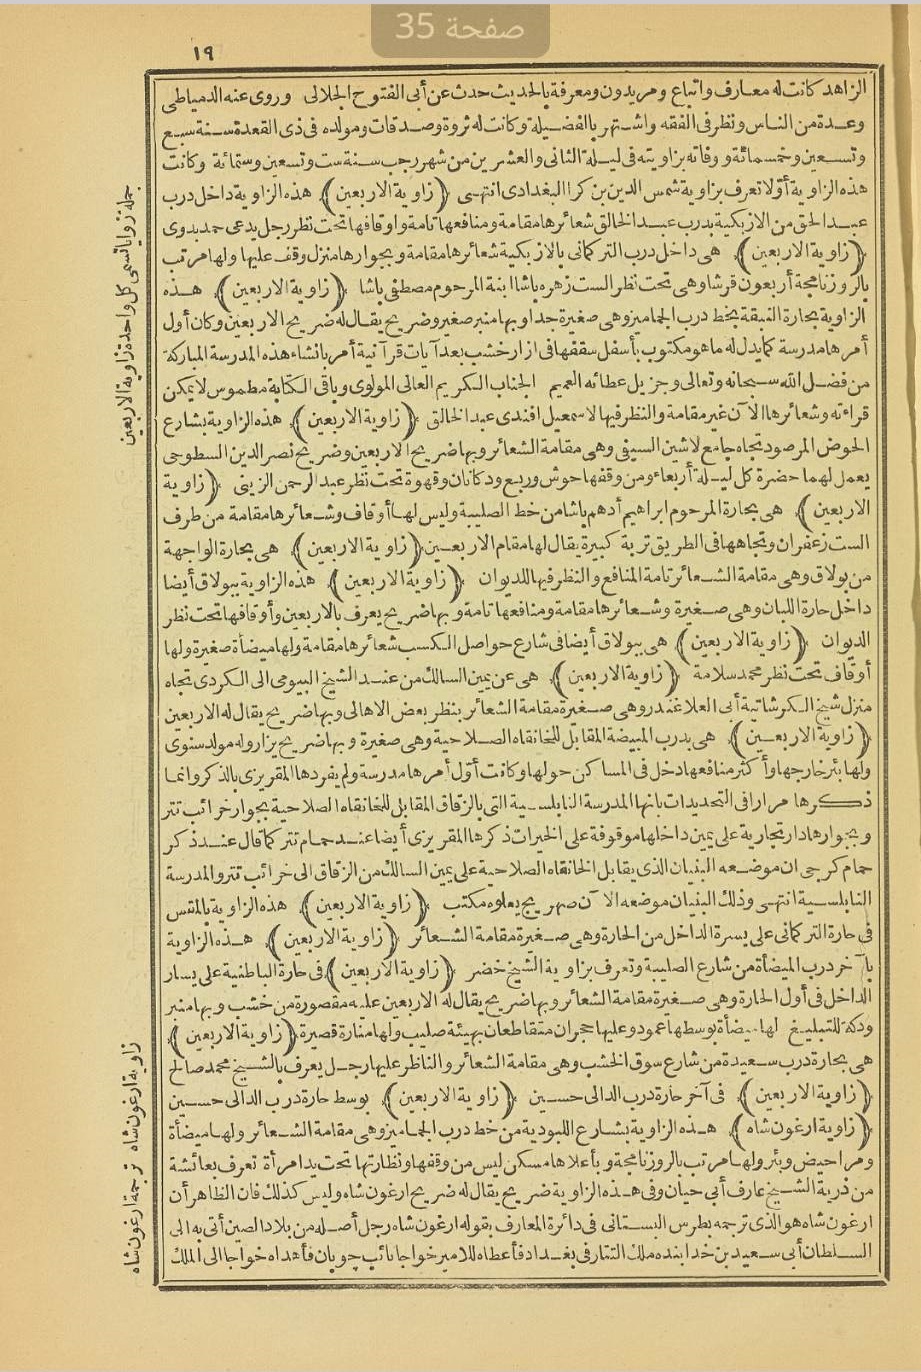 صفحة 35
١٩
الزاهد كانت له معارف واتباع ومريدون ومعرفة بالحديث حدث عن أبي الفتوح الجلالى وروى عنه الدمياطى
وعدة من الناس ونظر فى الفقه واشتهر بالفضيلة وكانت له ثروة وصدقات ومولده فى ذى القعدة سنة سبع
وتسعين وخمسمائة ووفاته بزاويته فى ليلة الثانى والعشرين من شهر رجب سنة ست وتسعين وستمائة وكانت
هذه الزاوية أولا تعرف بزاوية شمس الدين بن كرا البغدادى انتهى ﴿زاوية الاربعين﴾ هذه الزاوية داخل درب
عبد الحق من الازبكية بدرب عبد الخالق شعائرها مقامة ومنافعها تامة واوقافها تحت نظر رجل يدعى حمد بدوى
﴿زاوية الاربعين﴾ هى داخل درب التركمانى بالازبكية شعائرها مقامة وبجوارها منزل وقف عليها ولها مرتب
بالروزنامجة أربعون قرشا وهى تحت نظر الست زهره باشا ابنة المرحوم مصطفى باشا ﴿زاوية الاربعين﴾ هذه
الزاوية بحارة النبقة بخط درب الجماميز وهى صغيرة جدا وبها منبر صغير وضريح يقال له ضريح الاربعين وكان أول
أمرها مدرسة كما يدل له ما هو مكتوب بأسفل سقفها فى ازار خشب بعد آيات قرآنية أمر بانشاء هذه المدرسة المباركة
من فضل الله سبحانه وتعالى وجزيل عطائه العميم الجناب الكريم العالى المولوى وباقى الكتابة مطموس لا يمكن
قراءته وشعائرها الآن غير مقامة والنظر فيها لاسمعيل افندى عبد الخالق ﴿زاوية الاربعين﴾ هذه الزاوية بشارع
الحوض المرصود تجاه جامع لاشين السيفى وهى مقامة الشعائر وبها ضريح الاربعين وضريح نصر الدين السطوحى
يعمل لهما حضرة كل ليلة أربعاء ومن وقفها حوش وربع ودكانان وقهوة تحت نظر عبد الرحمن الزينى ﴿زاوية
الاربعين﴾ هى بحارة المرحوم ابراهيم أدهم باشا من خط الصليبة وليس لها أوقاف وشعائرها مقامة من طرف
الست زعفران وتجاهها فى الطريق تربة كبيرة يقال لها مقام الاربعين ﴿زاوية الاربعين﴾ هى بحارة الواجهة
من بولاق وهى مقامة الشعائر تامة المنافع والنظر فيها للديوان ﴿زاوية الاربعين﴾ هذه الزاوية ببولاق أيضا
داخل حارة اللبان وهى صغيرة وشعائرها مقامة ومنافعها تامة وبها ضريح يعرف بالاربعين وأوقافها تحت نظر
الديوان ﴿زاوية الاربعين﴾ هى ببولاق أيضا فى شارع حواصل الكسب شعائرها مقامة ولها ميضأة صغيرة ولها
أوقاف تحت نظر محمد سلامة ﴿زاوية الاربعين﴾ هى عن يمين السالك من عند الشيخ البيومى الى الكردى تجاه
منزل شيخ الكرشاتية أبى العلا غندر وهى صغيرة مقامة الشعائر بنظر بعض الاهالى وبها ضريح يقال له الاربعين
﴿زاوية الاربعين﴾ هى بدرب المبيضة المقابل للخانقاه الصلاحية وهى صغيرة وبها ضريح يزار وله مولد سنوى
ولها بئر خارجها وأكثر منافعها دخل فى المساكن حولها وكانت أول أمرها مدرسة ولم يفردها المقريزى بالذكر وانما
ذكرها مرارا فى التحديدات بانها المدرسة النابلسية التى بالزقاق المقابل للخانقاه الصلاحية بجوار خرائب تتر
وبجوارها دار تجارية على يمين داخلها موقوفة على الخيرات ذكرها المقريزى أيضا عند حمام تتر كما قال عند ذكر
حمام كرجى ان موضعه البنيان الذى يقابل الخانقاه الصلاحية على يمين السالك من الزقاق الى خرائب تتر والمدرسة
النابلسية انتهى وذلك البنيان موضعه الآن صهريج يعلوه مكتب ﴿زاوية الاربعين﴾ هذه الزاوية بالمقس
فى حارة التركمانى على يسرة الداخل من الحارة وهى صغيرة مقامة الشعائر ﴿زاوية الاربعين﴾ هذه الزاوية
بآخر درب الميضأة من شارع الصليبة وتعرف بزاوية الشيخ خضر ﴿زاوية الاربعين﴾ فى حارة الباطنية على يسار
الداخل فى أول الحارة وهى صغيرة مقامة الشعائر وبها ضريح يقال له الاربعين عليه مقصورة من خشب وبها منبر
ودكة للتبليغ لها ميضأة بوسطها عمود وعليها حجران متقاطعان بهيئة صليب ولها منارة قصيرة ﴿زاوية الاربعين﴾
هى بحارة درب سعيدة من شارع سوق الخشب وهى مقامة الشعائر والناظر عليها رجل يعرف بالشيخ محمد صالح
﴿زاوية الاربعين﴾ فى آخر حارة درب الدالى حسين ﴿زاوية الاربعين﴾ بوسط حارة درب الدالى حسين
﴿زاوية ارغون شاه﴾ هذه الزاوية بشارع اللبودية من خط درب الجماميز وهى مقامة الشعائر ولها ميضأة
ومراحيض وبئر ولها مرتب بالروزنامجة وبأعلاها مسكن ليس من وقفها ونظارتها تحت يد امرأة تعرف بعائشة
من ذرية الشيخ عارف أبى حيان وفى هذه الزاوية ضريح يقال له ضريح ارغون شاه وليس كذلك فان الظاهر أن
ارغون شاه هو الذى ترجمه بطرس البستانى فى دائرة المعارف بقوله ارغون شاه رجل أصله من بلاد الصين أتى به الى
السلطان أبى سعيد بن خدابنده ملك التتار فى بغداد فأعطاه للامير خواجا نائب چوبان فأهداه خواجا الى الملك
جملة زوايا تسمى كل واحدة زاوية الاربعين
زاوية ارغون شاه ترجمة ارغون شاه